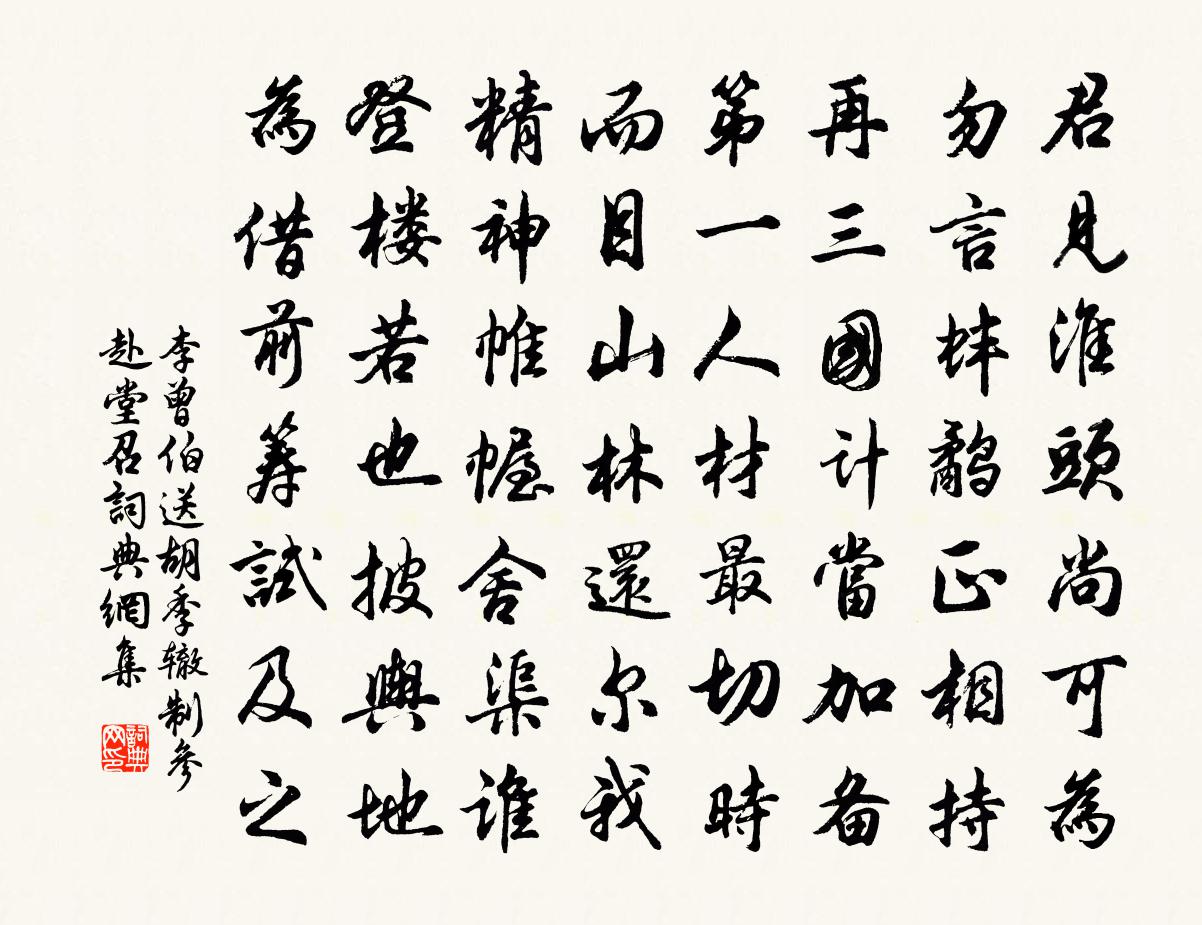 君見淮頭尚可為
勿言蚌鷸正相持
再三國計當加备
第一人材最切時
而目山林還尔我
精神帷幄舍渠谁
登楼若也披輿地
為借前筹試及之
李曾伯送胡季辙制參
赴堂召詞典網集
詞典网印